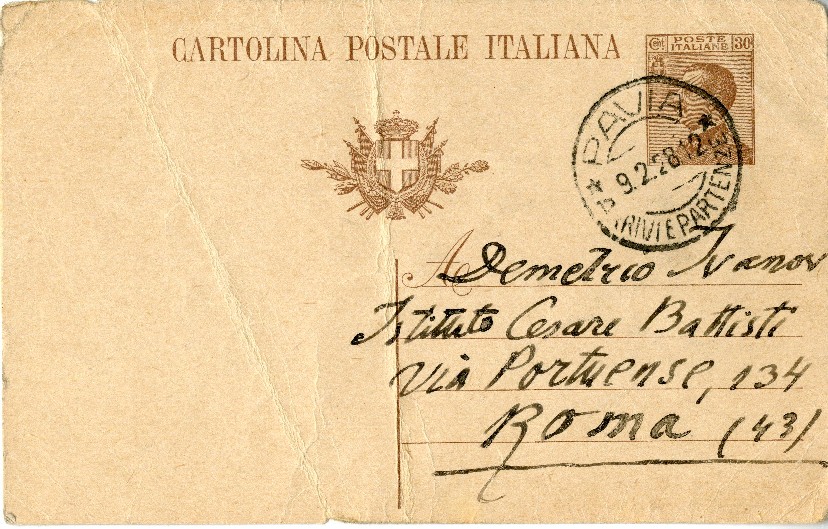 CARTOLINA POSTALE ITALIANA
POSTE ITALIANE
30
PAVIA
9.2.28.12
ARRIVI E PARTENZE
A Demetrio Ivanov
Istituto Cesare Battisti
Via Portuense, 134
Roma (43)